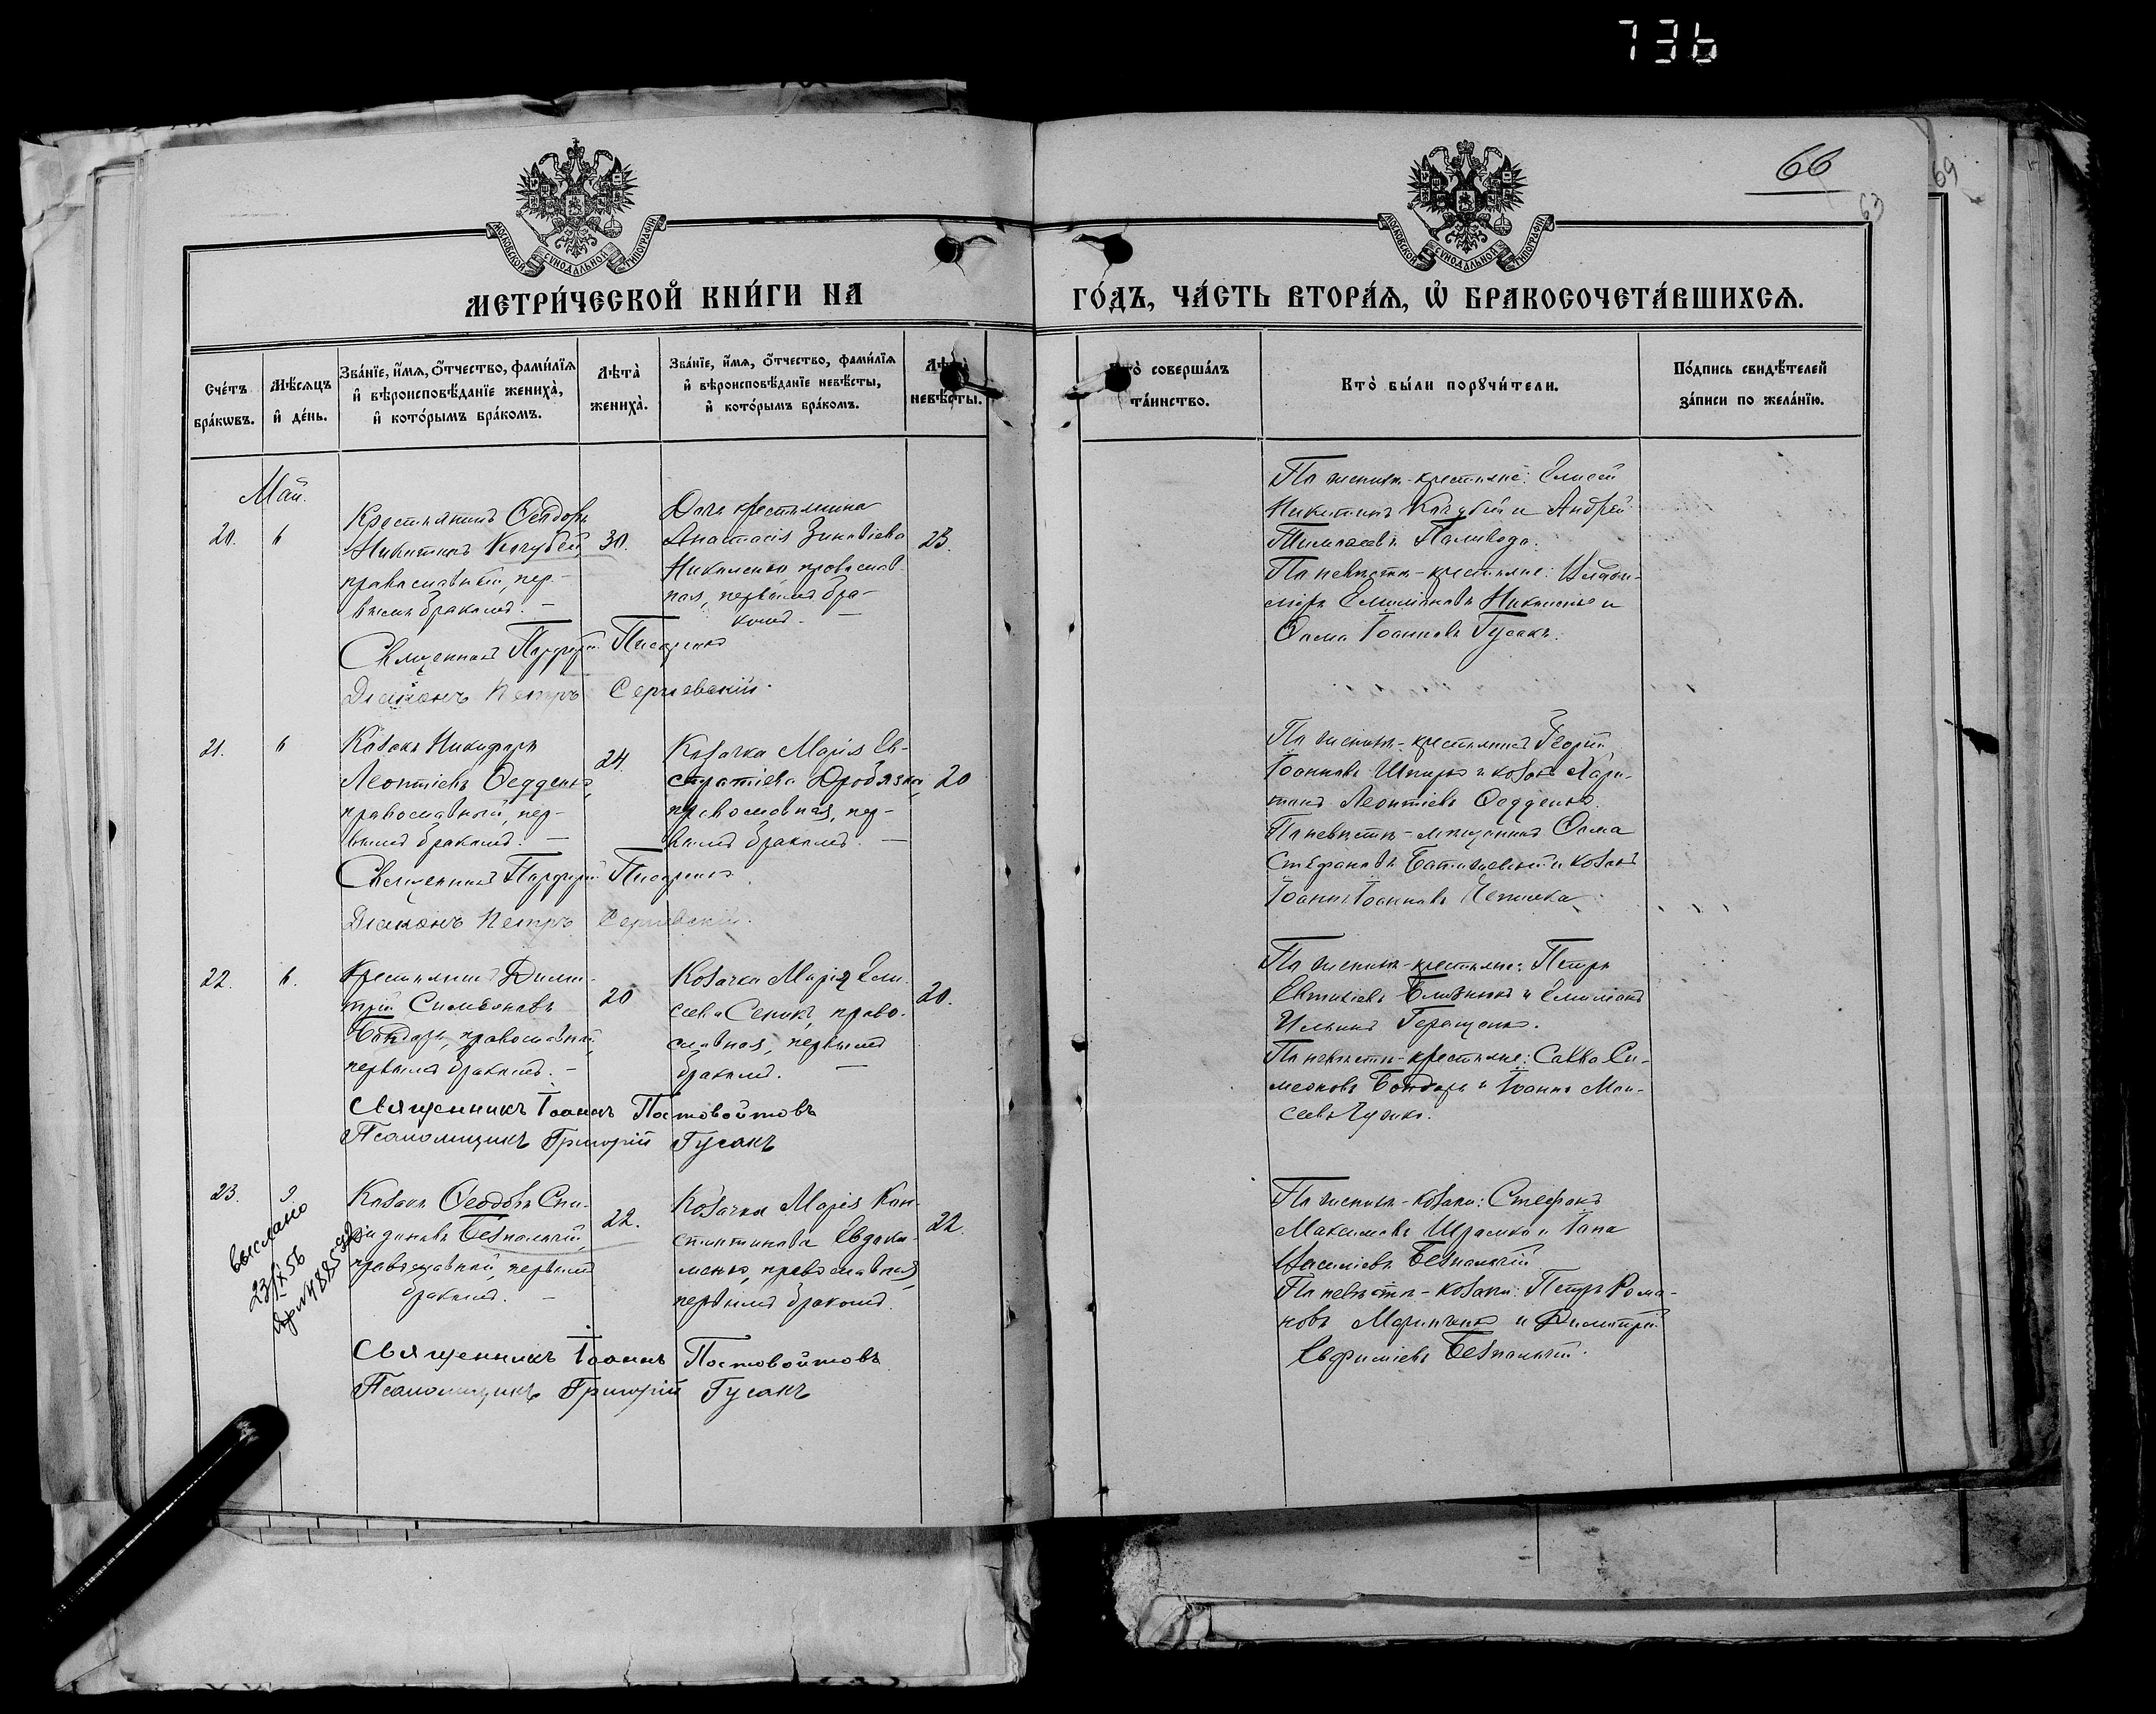 736
66
63
69
МОСКОВСКОЙ СѴНОДАЛЬНОЙ ТИПОГРАФІИ
МОСКОВСКОЙ СѴНОДАЛЬНОЙ ТИПОГРАФІИ
МЕТРИ́ЧЕСКОЙ КНИ́ГИ НА
ГО́ДЪ, ЧА́СТЬ ВТОРА́Ѧ, Ѡ҆ БРАКОСОЧЕТА́ВШИХСѦ.
Сче́тъ бра́кѡвъ.
Мѣ́сяцъ и҆ де́нь.
Зва́нїе, и҆́мѧ, о҆́тчество, фами́лїѧ и҆ вѣроисповѣ́данїе жениха̀, и҆ кото́рымъ бра́комъ.
Лѣта̀ жениха̀.
Зва́нїе, и҆́мѧ, о҆́тчество, фами́лїѧ и҆ вѣроисповѣ́данїе невѣ́сты, и҆ кото́рымъ бра́комъ.
Лѣта̀ невѣ́сты.
Кто̀ соверша́лъ та́инство.
Кто̀ бы́ли порꙋчи́тели.
По́дпись свидѣ́телей за́писи по жела́нїю.
Май.
20.
6
Крестьянинъ Ѳеодоръ
Никитинъ Кочубей,
православный, пер-
вымъ бракомъ. —
30.
Дочь крестьянина
Анастасія Зиновіева
Николенко, православ-
ная, первымъ бра-
комъ. —
23.
Священникъ Порфирій Писаренко
Діаконъ Петръ Сергіевскій.
По женихѣ-крестьяне: Елисей
Никитинъ Кочубей и Андрей
Паливода.
По невѣстѣ-крестьяне: Влади-
міръ Емиліановъ Николенко и
Ѳома Іоанновъ Гусакъ.
21.
6
Козакъ Никифоръ
Леонтіевъ Ѳедденко,
православный, пер-
вымъ бракомъ. —
24.
Козачка Марія Ев-
стратіева Дробязка,
православная, пер-
вымъ бракомъ. —
20
Священникъ Порфирій Писаренко
Діаконъ Петръ Сергіевскій.
По женихѣ-крестьянинъ Георгій
Іоанновъ Шпирко и козакъ Хари-
тонъ Леонтіевъ Ѳедденко.
По невѣстѣ-мѣщанинъ Ѳома
Стефановъ и козакъ
Іоаннъ Іоанновъ
22.
6.
Крестьянинъ Дими-
трій Симеоновъ
Бондарь, православный,
первымъ бракомъ. —
20
Козачка Марія Ели-
сеева Сеникъ, право-
славная, первымъ
бракомъ. —
20.
Священникъ Іоаннъ Постовойтовъ
Псаломщикъ Григорій Гусакъ
По женихѣ-крестьяне: Петръ
Евтихіевъ Близнюкъ и Емиліанъ
Ильинъ Геращенко.
По невѣстѣ-крестьяне: Савва Си-
меоновъ Бондарь и Іоаннъ Мои-
сеевъ
23.
9.
Козакъ Ѳеодоръ Спи-
ридоновъ Безпалый,
православный, первымъ
бракомъ. —
22.
Козачка Марія Кон-
стантинова Евдоки-
менко, православная,
первымъ бракомъ.
22.
выслано
23/IX 56
Священникъ Іоаннъ Постовойтовъ
Псаломщикъ Григорій Гусакъ
По женихѣ-козаки: Стефанъ
Максимовъ Шрамко и
Василіевъ Безпалый.
По невѣстѣ-козаки: Петръ Рома-
новъ Маринченко и Димитрій
Евфиміевъ Безпалый.